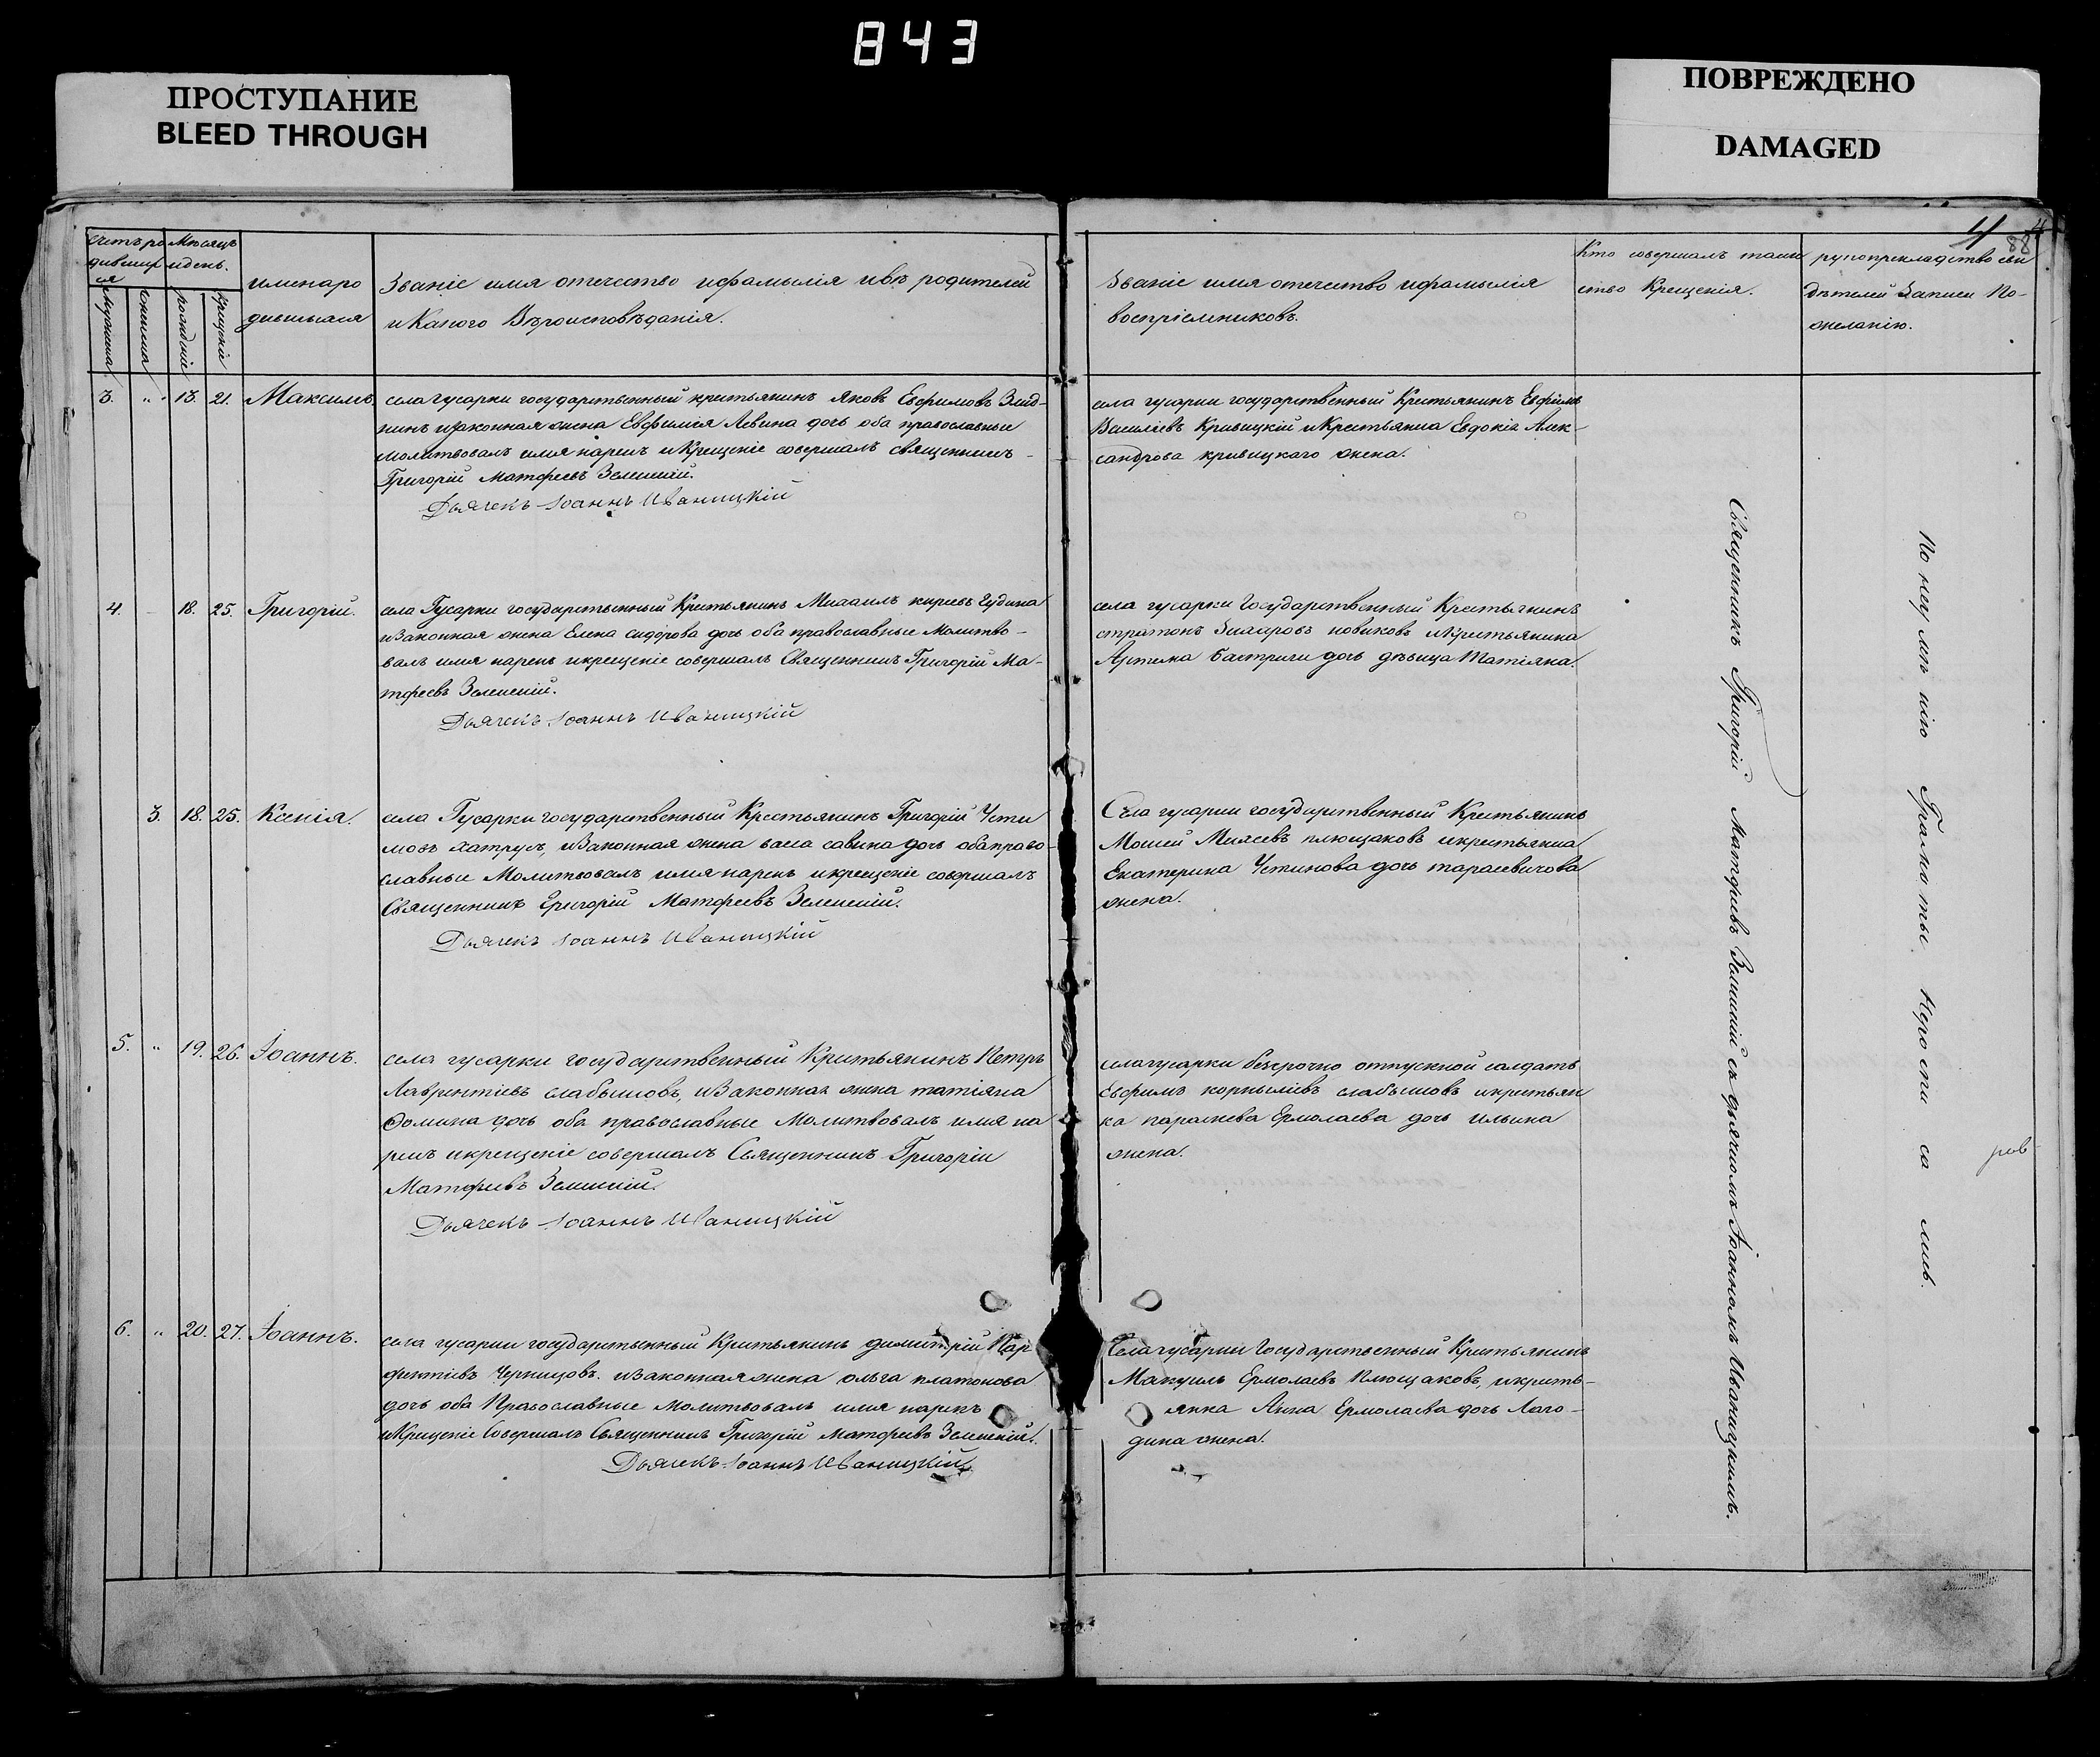 843
ПРОСТУПАНИЕ
BLEED THROUGH
ПОВРЕЖДЕНО
DAMAGED
4
88
счетъ ро
дивших
ся
Мѣсяцъ
и день.
мужеска
женска
рожденіе
крещеніе
имена ро
дившихся
Званіе имя отечество и фамылія ивъ родителей
и Какого Вѣроисповѣданія.
Званіе имя отечество и фамылія
воспріемниковъ.
Кто совершалъ таин
ство Крещенія.
рукоприкладство сви
дѣтелей Записи По-
желанію.
3. „ 13. 21. Максимъ
села гусарки государственный крестьянинъ Яковъ Евфимовъ
и законная жена Евфимія Левина дочь оба православные
молитвовалъ имя нарекъ и Крещеніе совершалъ священникъ
Григорій Матфеевъ Зеленскій.
Дьячекъ Іоаннъ Иваницкій
села гусарки государственный Крестьянинъ Евфимъ
Василіевъ Кривицкій и Крестьянка Евдокія Алек-
сандрова кривицкаго жена.
4. 18. 25. Григорій.
села Гусарки государственный Крестьянинъ Михаилъ
и Законная жена Елена Сидорова дочь оба православные Молитво-
валъ имя нарекъ и крещеніе совершалъ Священникъ Григорій Ма-
тфеевъ Зеленскій.
Дьячекъ Іоаннъ Иваницкій
села гусарки Государственный Крестьянинъ
новиковъ и Крестьянина
Артема дочь дѣвица Татіяна.
3. 18. 25. Ксенія.
села Гусарки государственный Крестьянинъ Григорій Усти
мовъ и Законная жена васса савина дочь оба право-
славные Молитвовалъ имя нарекъ и крещеніе совершалъ
Священникъ Григорій Матфеевъ Зеленскій.
Дьячекъ Іоаннъ Иваницкій
Села гусарки государственный Крестьянинъ
Моисей плющаковъ и крестьянка
Екатерина Устинова дочь тарасевичова
жена.
5. „ 19. 26. Іоаннъ.
села гусарки государственный Крестьянинъ Петръ
Лаврентіевъ слабышовъ, и Законная жена татіяна
Фомина дочь оба православные Молитвовалъ имя на
рекъ и крещеніе совершалъ Священникъ Григорій
Матфеевъ Зеленскій.
Дьячекъ Іоаннъ Иваницкій
села гусарки безсрочно отпускной салдатъ
Евфимъ корнылієвъ слабышовъ и крестьян
ка параскева Ермолаева дочь ильина
жена.
6. „ 20. 27. Іоаннъ.
села гусарки государственный Крестьянинъ димитрій Пар
фентіевъ Черницовъ. и законная жена ольга платонова
дочь оба Православные Молитвовалъ имя нарекъ
и Крещеніе Совершалъ Священникъ Григорій Матфеевъ Зеленскій.
Дьячекъ Іоаннъ Иваницкій
Села гусарки Государственный Крестьянинъ
Мануилъ Ермолаевъ Плющаковъ, и кресть-
янка Анна Ермолаева дочь Лаго-
дина жена.
Священникъ Григорій Матфеевъ Зеленскій съ дьячкомъ Іоанномъ Иваницкимъ.
По неумѣнію Граматы Нероспи са лись.